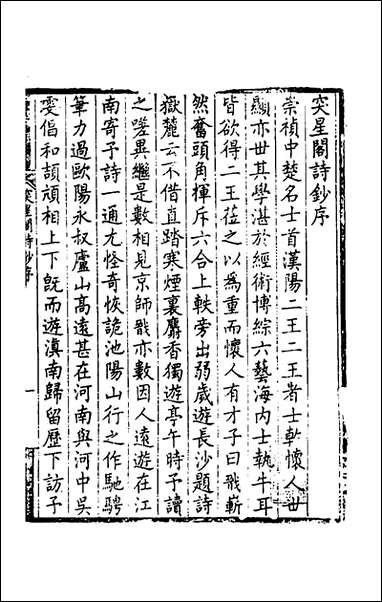 突星閣詩鈔序
崇禎中楚名士首漢陽二王二王者士乾懷人世
顯亦世其學湛於經術博綜六藝海内士執牛耳
皆欲得二王莅之以爲重而懷人有才子曰戩嶄
然奮頭角揮斥六合上軼旁出弱歲遊長沙題詩
嶽麓云不借直踏寒煙裏麝香獨遊亭午時予讀
之嗟異繼是數相見京師戩亦數因人遠遊在江
南寄予詩一通尤怪奇恢詭池陽山行之作馳騁
筆力過歐陽永叔廬山高遠甚在河南與河中吳
雯倡和頡頏相上下既而遊滇南歸留歷下訪子
突星閣詩鈔序
一